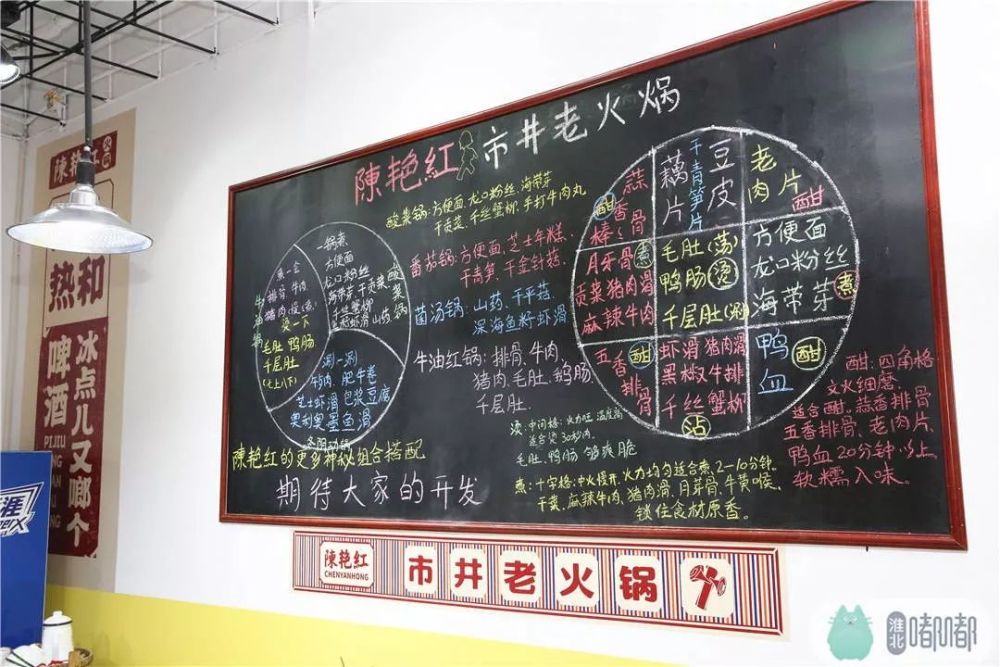 陳艳紅 市井老火焗
酸菜锅:方便面、龙口粉丝、海带芽
干贡菜、千丝蟹柳、手打牛肉丸
番茄锅:方便面、芝士年糕、
干莴笋、千金针菇。
菌汤锅:山药、干平菇、
深海鱼籽虾滑
牛油红锅:排骨、牛肉
猪肉、毛肚、鹅肠
千层肚。
一锅煮
方便面
龙口粉丝
海带芽 干贡菜
千丝蟹柳
山药
酸菜锅
牛油锅
排骨 牛肉
猪肉
烫一下
毛肚 鸭肠
千层肚
(七上八下)
涮一涮
牛肉 肥牛卷
芝士虾滑 包浆豆腐
奥利奥墨鱼滑
冬阴功锅
陳艳红的更多神秘组合搭配
期待大家的开发
蒜香棒骨
酣
藕片
干青笋片
豆皮
老肉片
酣
月牙骨
煮
贡菜猪肉滑
麻辣牛肉
毛肚(荡)
鸭肠
烫
千层肚(涮)
方便面
龙口粉丝
海带芽
煮
五香排骨
酣
虾滑 猪肉滑
黑椒牛排
千丝蟹柳
沾
鸭血
酣
烫:中间格:火力旺 温度高
适合烫30秒肉
毛肚、鸭肠 够爽脆
煮:十字格:中火慢开,火力均匀适合煮2-10分钟。
干菜、麻辣牛肉、猪肉滑、月芽骨、牛黄喉、
锁住食材原香。
酣:四角格
文火细磨
适合酣。蒜香排骨
五香排骨、老肉片、
鸭血20分钟以上
软糯入味。
陳艳红
CHENYANHONG
市井老火锅
陳艳红
热和
啤酒
PIJIU
冰点儿又啷个
淮北
嘟嘟